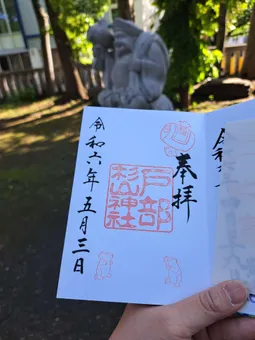 奉拝
戸部
杉山神社
令和六年五月三日